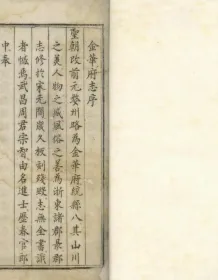 金華府志序
聖朝改前元婺州路為金華府統縣八其山川
之美人物之盛風俗之善為浙東諸郡最郡
志修於宋元間歲久板刻殘毀志無全書識
者憾焉武昌周君宗智由名進士歷春官郎
中奉